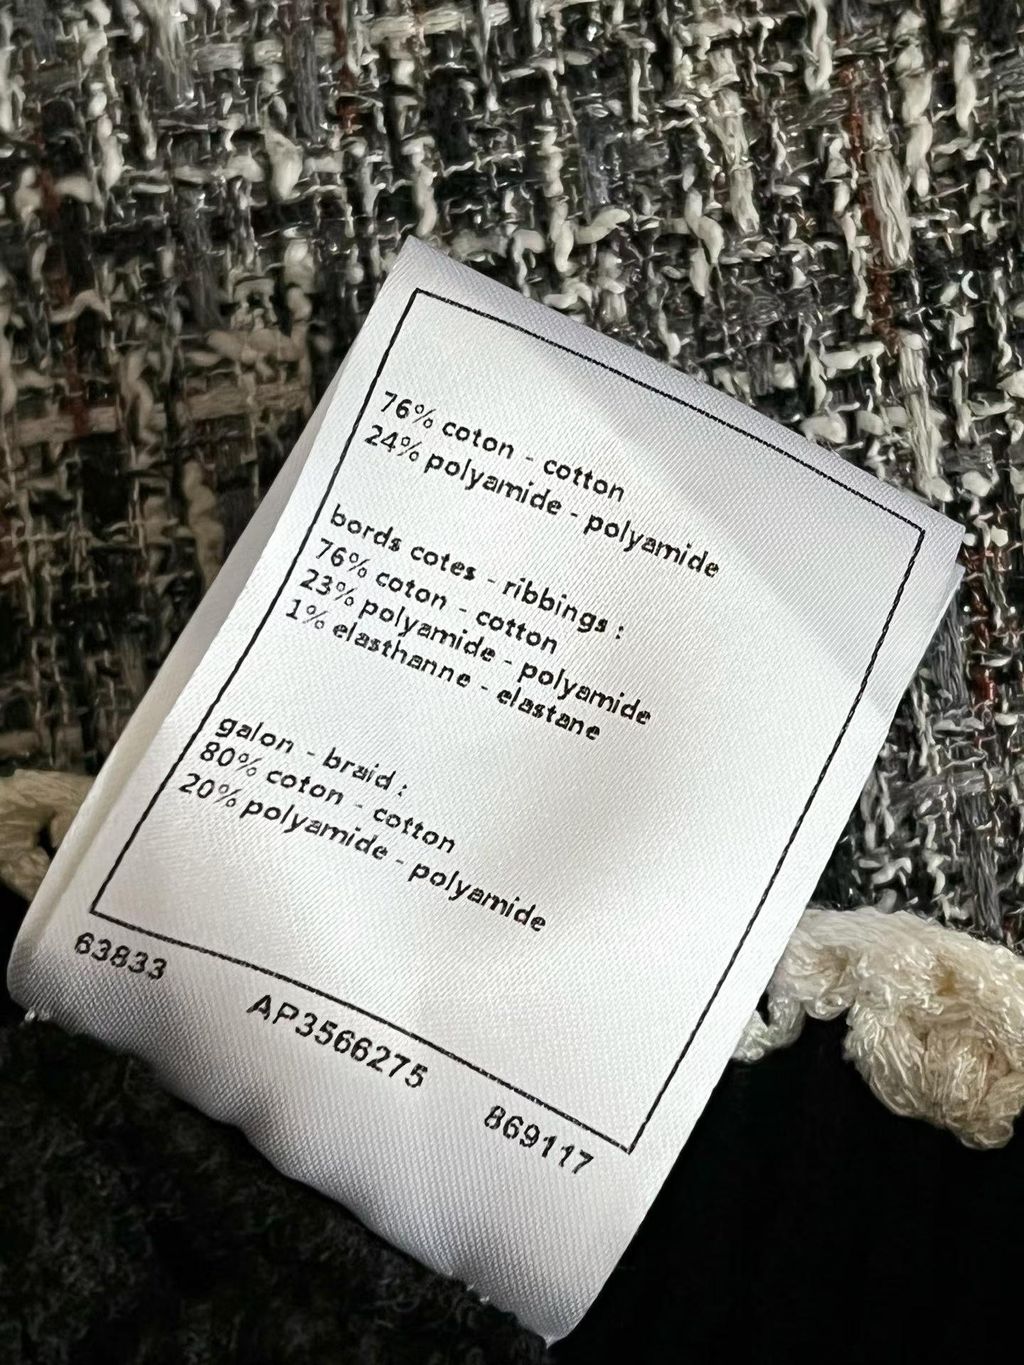 76% coton - cotton
24% polyamide - polyamide
bords cotes - ribbings :
76% coton - cotton
23% polyamide - polyamide
1% elasthanne - elastane
galon - braid :
80% coton - cotton
20% polyamide - polyamide
63833
AP3566275
869117